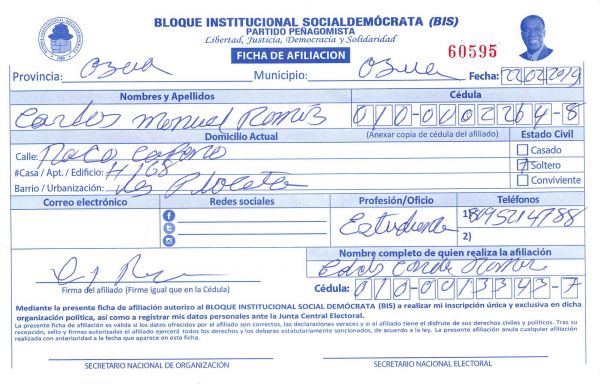 BLOQUE INSTITUCIONAL SOCIALDEMÓCRATA (BIS)
PARTIDO PEÑAGOMISTA
Libertad, Justicia, Democracia y Solidaridad
FICHA DE AFILIACION
60595
Provincia: Azua Municipio: Azua Fecha: 22/02/2019
Nombres y Apellidos Cédula
Carlos Manuel Ramís 010-0002264-8
Domicilio Actual (Anexar copia de cédula del afiliado) Estado Civil
Calle: Casado
#Casa / Apt. / Edificio: # 168 Soltero
Barrio / Urbanización: Conviviente
Correo electrónico Redes sociales Profesión/Oficio Teléfonos
Estudiante 1) 8095214788
2)
Nombre completo de quien realiza la afiliación
Conde
Firma del afiliado (Firme igual que en la Cédula) Cédula: 010-0013343-7
Mediante la presente ficha de afiliación autorizo al BLOQUE INSTITUCIONAL SOCIAL DEMÓCRATA (BIS) a realizar mi inscripción única y exclusiva en dicha
organización política, así como a registrar mis datos personales ante la Junta Central Electoral.
La presente ficha de afiliación es válida si los datos ofrecidos por el afiliado son correctos, las declaraciones veraces y si el afiliado tiene el disfrute de sus derechos civiles y políticos. Tras su
recepción, sello y firmas autorizadas el afiliado ejercerá todos los derechos y los deberes estatutariamente sancionados, de acuerdo a la ley. La presente afiliación anula cualquier afiliación
realizada con anterioridad a la fecha que aparece en esta ficha.
SECRETARIO NACIONAL DE ORGANIZACIÓN SECRETARIO NACIONAL ELECTORAL